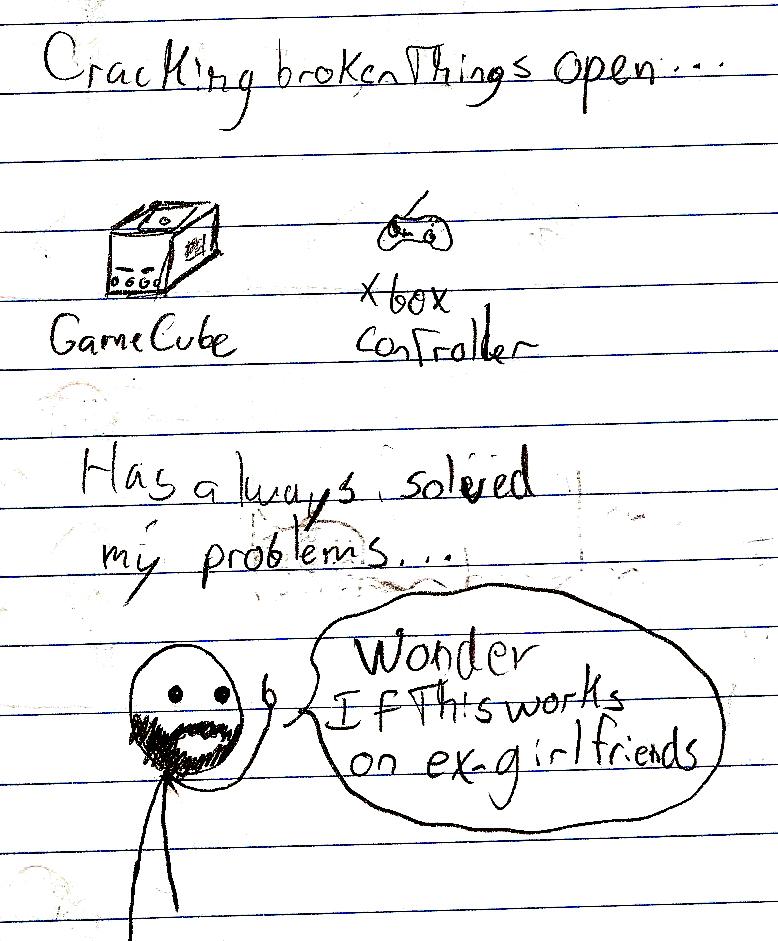 Cracking broken Things open...
GameCube
xbox
controller
Has always solved
my problems...
Wonder
If This works
on ex-girlfriends